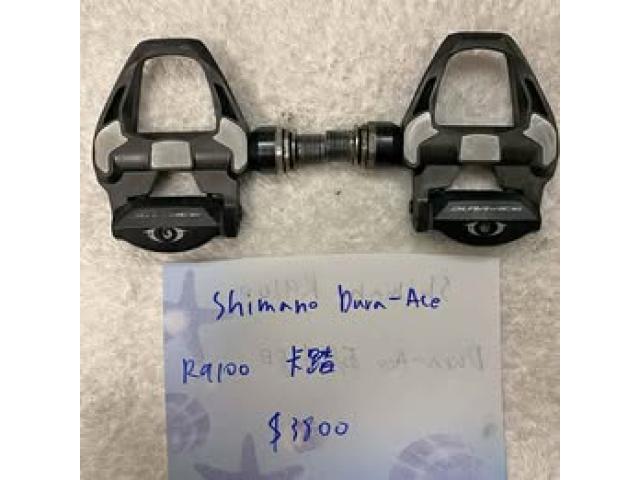 DURA-ACE
Shimano Dura-Ace
R9100 卡踏
$3800